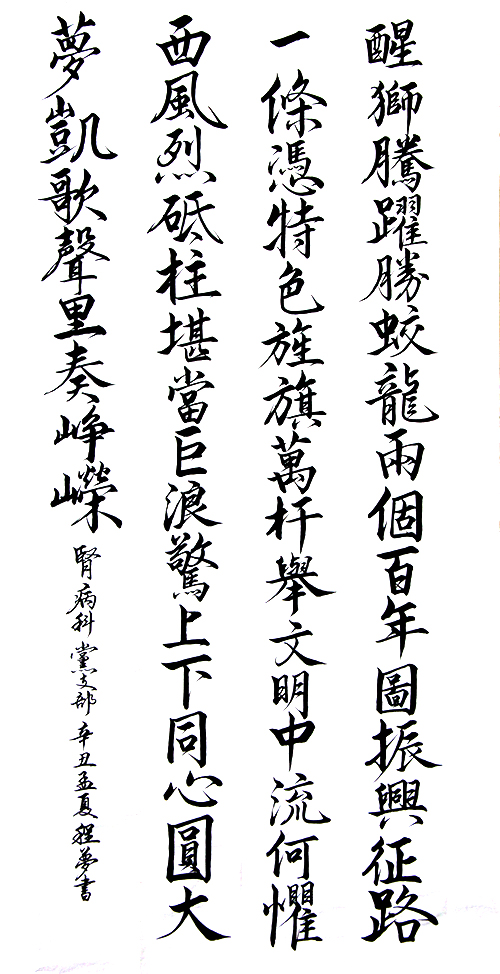 醒獅騰躍勝蛟龍兩個百年圖振興征路
一條憑特色旌旗萬杆舉文明中流何懼
西風烈砥柱堪當巨浪驚上下同心圓大
夢凱歌聲里奏崢嶸
腎病科黨支部辛丑孟夏程夢書